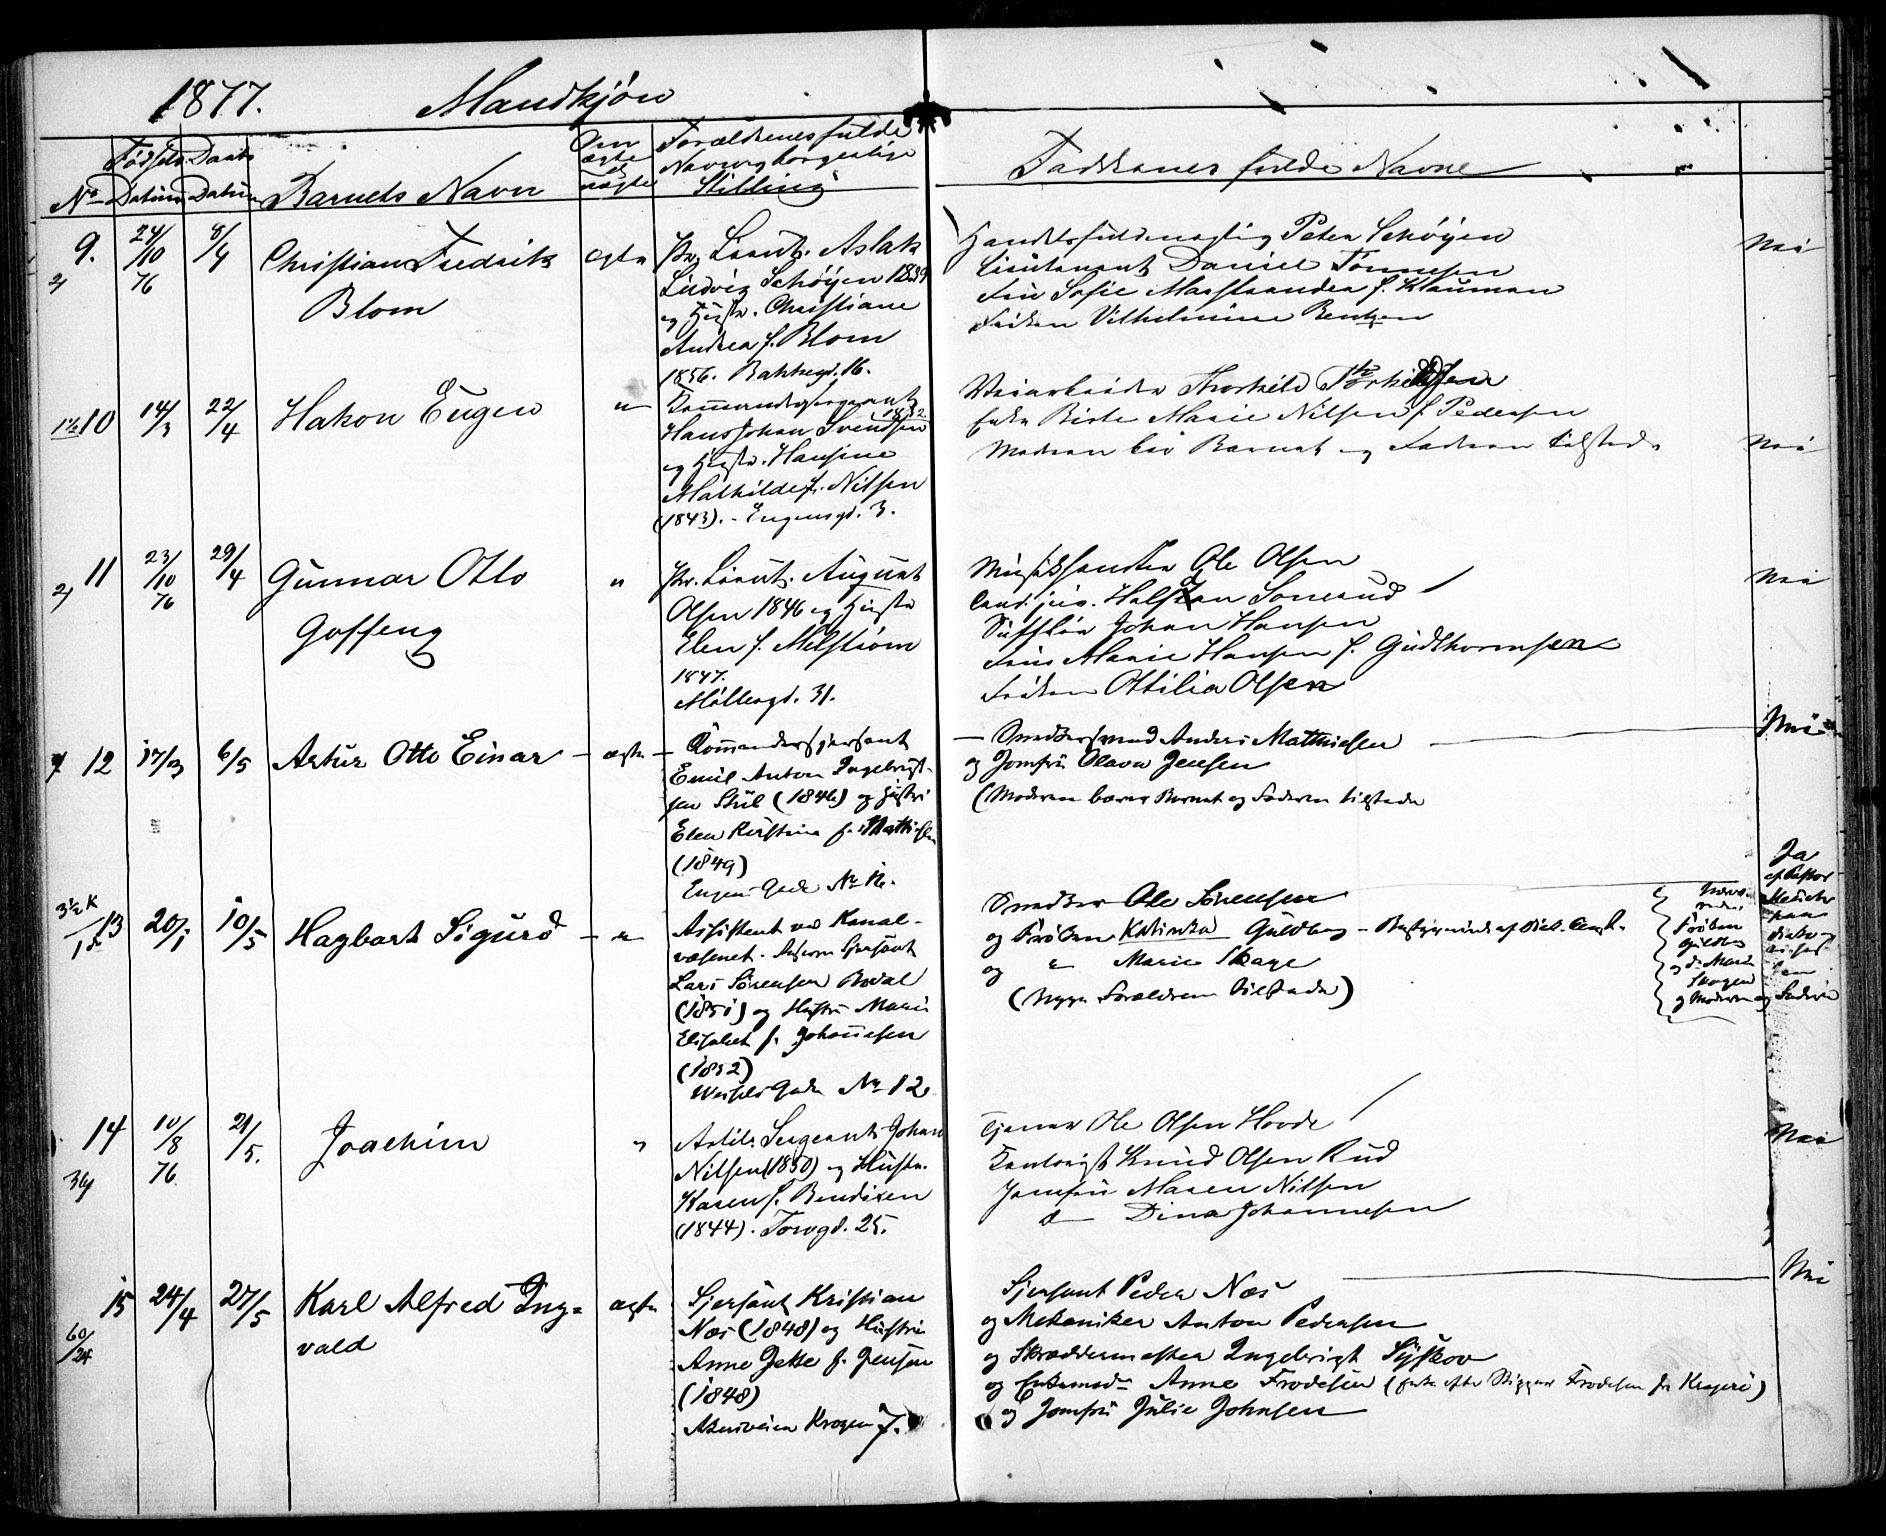 1877. Mandkjøn
No Fødsels Datum Daabs Datum Barnets Navn Om ægte el. uægte Forældrenes fulde Navn og borgerlige Stilling
Faddernes fulde Navne
9. 24/10 76 8/4 Christian Fredrik Blom ægte
Pr. Lieut. Aslak
Ludvig Schøyen 1839
og Hustr. Christiane
Andrea f. Blom
1856. Bakkegd. 16.
Handelsfuldmægtig Peter Schøyen
Lieutenant Daniel Tønnesen
Fru Sofie Marstrander f. Klauman
Frøken Vilhelmine Bentzen
Nei
10 14/3 22/4 Hakon Eugen "
Kommandersergeant
Hans Johan Svendsen 1832
og Hustr. Hansine
Mathilde f. Nilsen
(1843). - Eugensgd. 3.
Veiarbeider Thorkild Thorkildsen
Enke Birte Marie Nilsen f. Pedersen
Moderen bar Barnet og Faderen tilstede
Nei
11 23/10 76 29/4 Gunnar Otto Goffeng "
Pr. Lieut. August
Olsen 1846 og Hustr.
Elen f. Melstrøm
1847.
Møllergd. 31.
Musikhandler Ole Olsen
Cand. jur. Halfdan Somerud
Sufflør Johan Hansen
Fru Marie Hansen f. Gudthormsen
Frøken Ottilia Olsen
Nei
12 17/3 6/5 Artur Otto Einar - ægte -
Kommandersjersant
Emil Anton Ingebrigt-
sen (1846) og Hustru
Elen Kristine f. Mathisen
(1849)
Eugens Gade No 16.
- Snedkersvend Anders Mathiesen
og Jomfru Olava Jensen
(Moderen bærer Barnet og Faderen tilstede
Nei
13 20/1 10/5 Hagbart Sigurd - " -
Assistent ved Kanal-
væsenet.
Lars Sørensen
(1851) og Hustru Marie
Elisabet f. Johannesen
(1852)
Wessels Gade No 12
Snedker Ole Sørensen
og Frøken Katinka Guldberg
og " Marie Skage
(begge Forældrene tilstede)
Frøken
Guldberg
og Moderen og Faderen
Ja
af Pastor
paa
14 10/8 76 21/5. Joachim "
Artil. Sergeant Johan
Nilsen (1850) og Hustr.
Karen f. Bendixen
(1844). Torvgd. 25.
Tjener Ole Olsen Hovde
Kontorist Knud Olsen Rud
Jomfru Maren Nilsen
d - Dina Johannesen
Nei
15 24/4 27/5 Karl Alfred Ing-
vald ægte
60/24
Sjersant Kristian
Næs (1848) og Hustru
Anne Jette f. Jensen
(1848)
Akersveien Krogen 7.
Sjersant Peder Næs
og Mekaniker Anton Pedersen
og Skræddermester Ingebrigt Syskov
og Enkemad. Anne Frodesen (Enke efter Skipper Frodesen fr. Kragerø)
og Jomfru Julie Johnsen
Nei